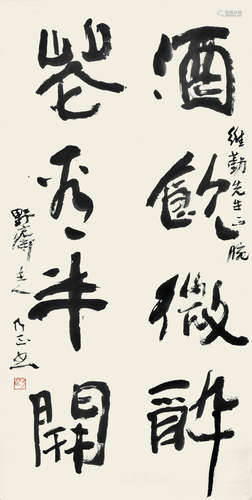 維勤先生正腕
酒飲微酔
花看半開
主人乃正書